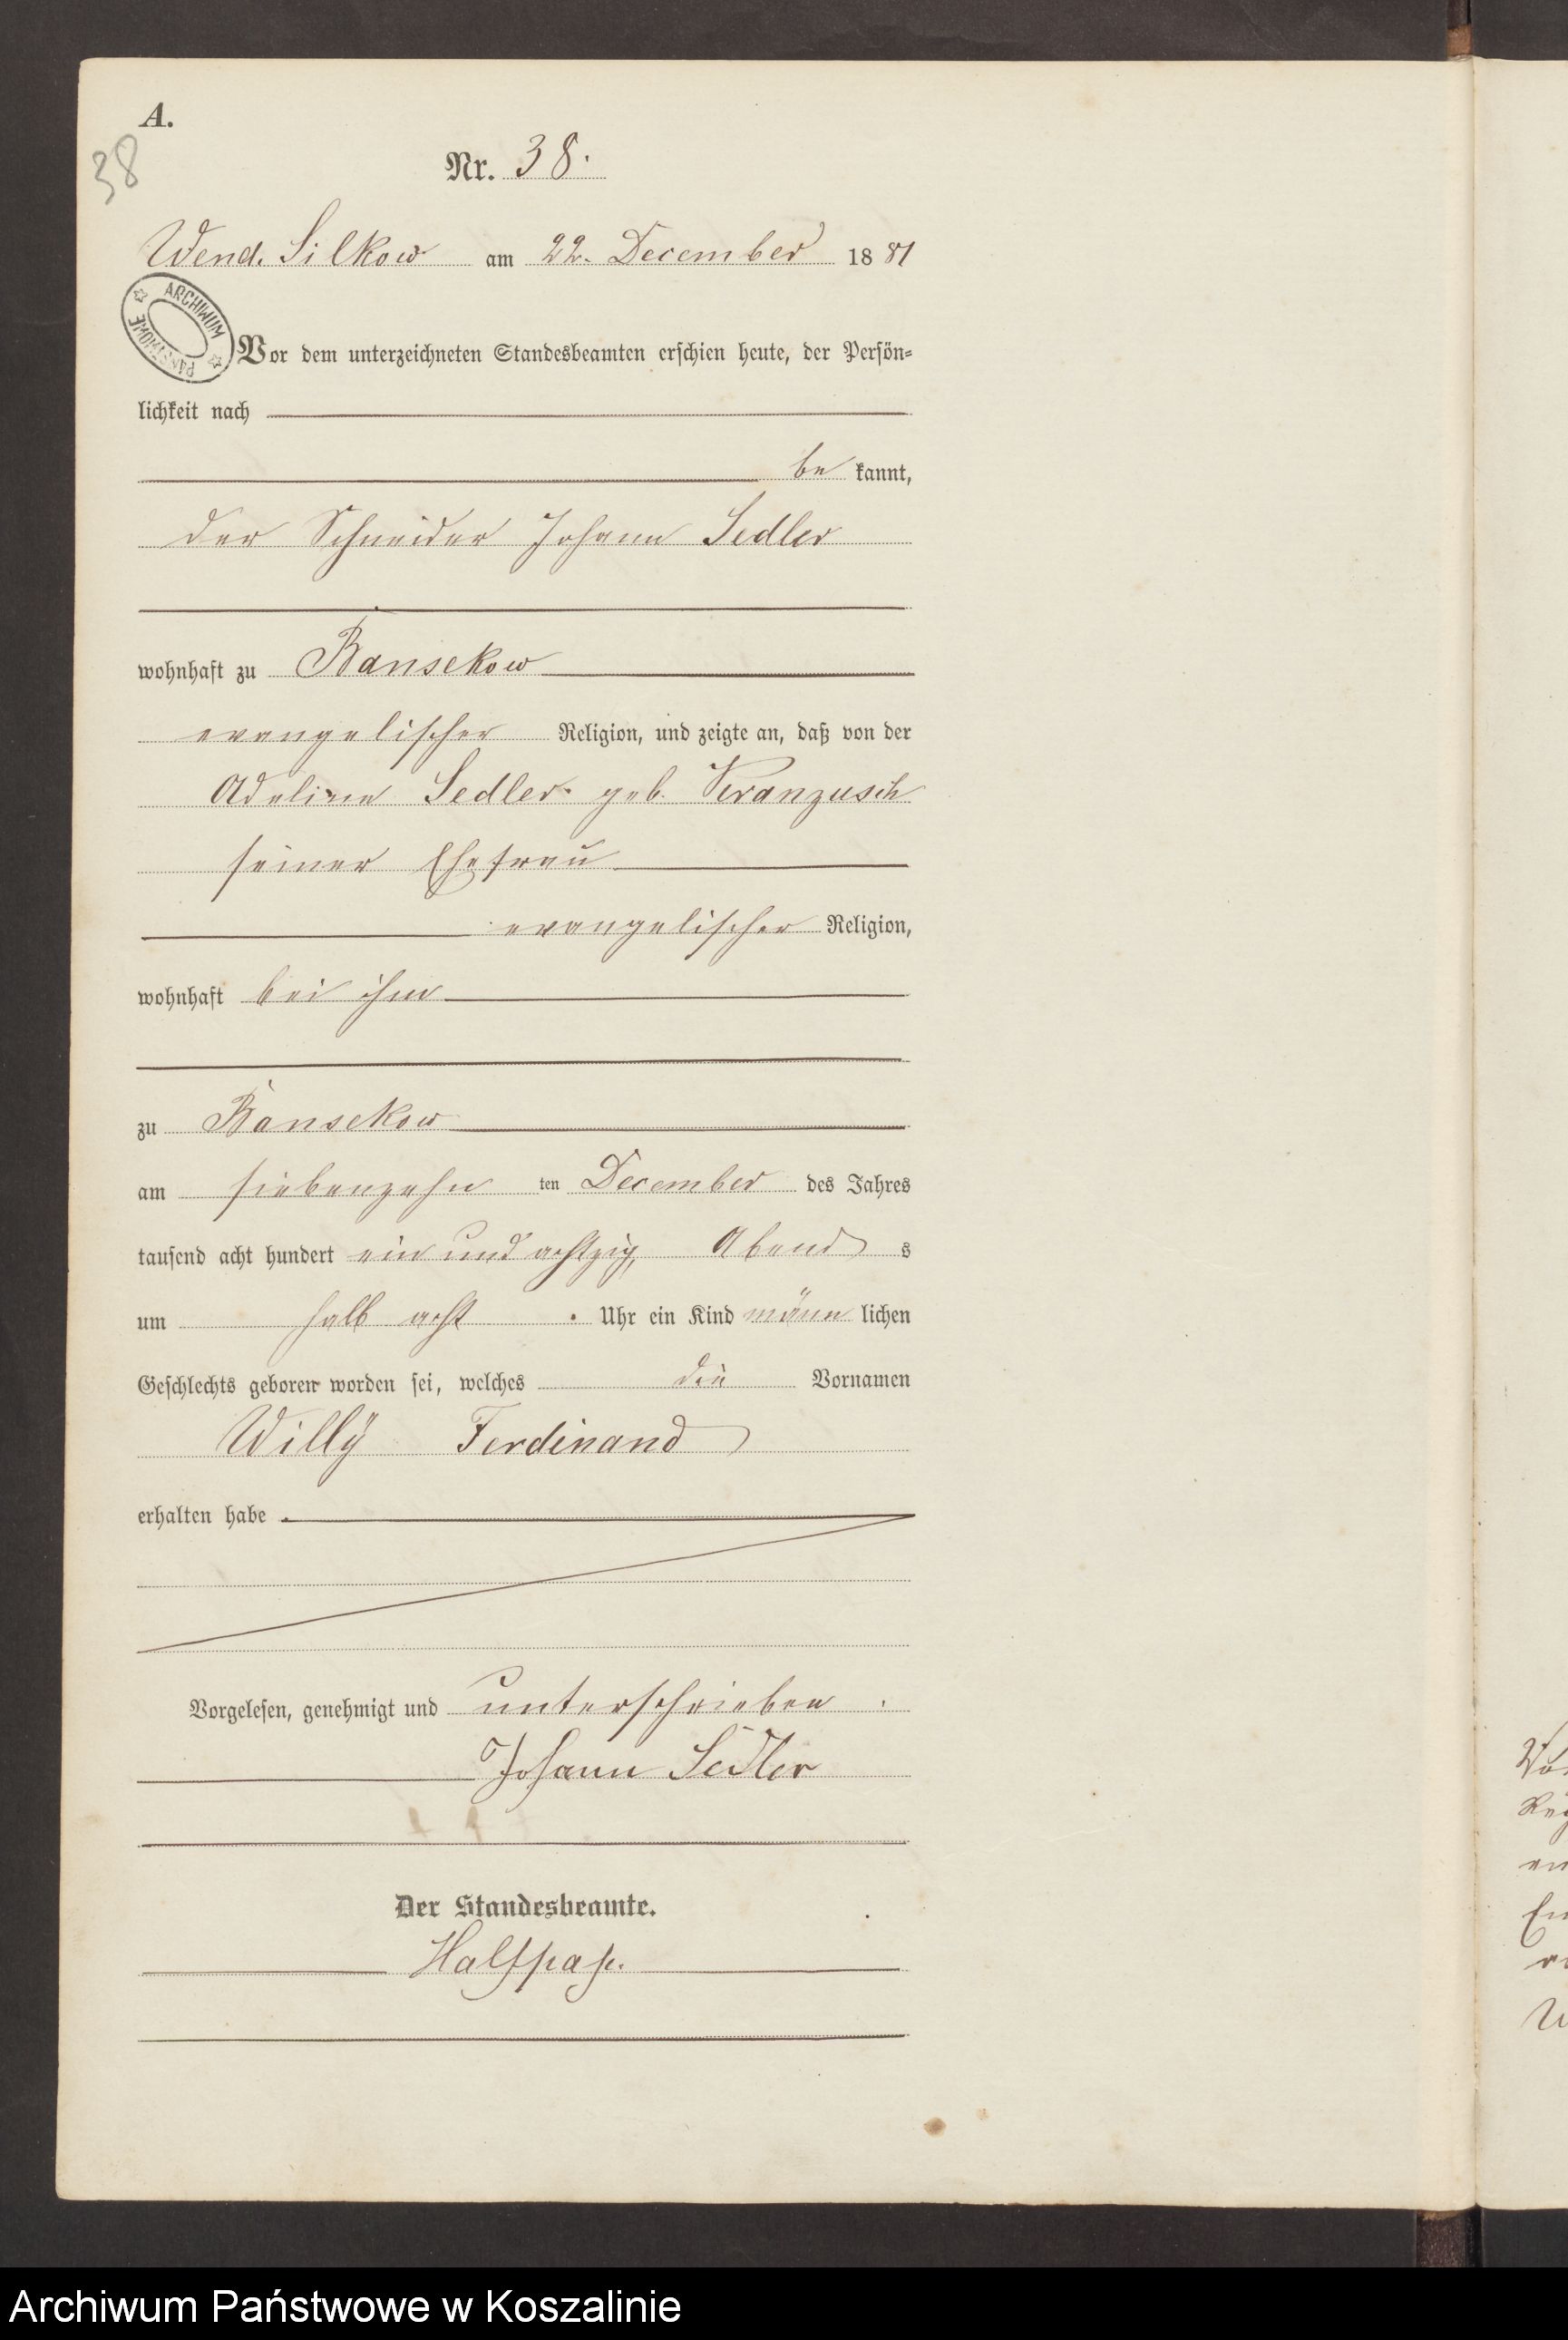 A.
38
Nr. 38.
Wend. Silkow am 22. December 1881
ARCHIWUM PAŃSTWOWE
Vor dem unterzeichneten Standesbeamten erschien heute, der Persön=
lichkeit nach
be kannt,
der Schneider Johann Sedler
wohnhaft zu Bansekow
evangelischer Religion, und zeigte an, daß von der
Adeline Sedler geb. Kranzusch
seiner Ehefrau
evangelischer Religion,
wohnhaft bei ihm
zu Bansekow
am siebenzehn ten December des Jahres
tausend acht hundert ein und achtzig, Abend s
um halb acht Uhr ein Kind männ lichen
Geschlechts geboren worden sei, welches die Vornamen
Willÿ Ferdinand
erhalten habe.
Vorgelesen, genehmigt und unterschrieben.
Johann Sedler
Der Standesbeamte.
Halfpap.
Archiwum Państwowe w Koszalinie